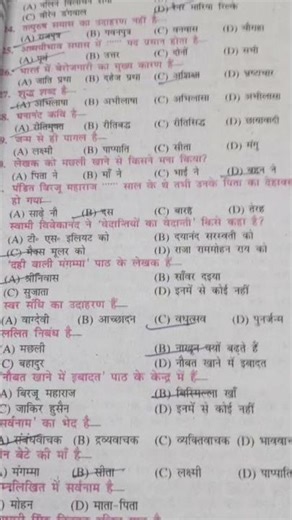 (C) बीरेन बेनिवाल (D) रैनर मारिया रिल्के
तत्पुरुष समास का उदाहरण नहीं है—
(A) राजपुत्र (B) पवनपुत्र (C) वनवास (D) चौराहा
अव्ययीभाव समास में ...... पद प्रधान होता है—
(A) पूर्व (B) उत्तर (C) दोनों (D) सभी
भारत में बेरोजगारी का मुख्य कारण है—
(A) जाति प्रथा (B) दहेज प्रथा (C) अशिक्षा (D) भ्रष्टाचार
27. शुद्ध शब्द है—
(A) अभिलाषा (B) अभीलाषा (C) अभिलासा (D) अभीलासा
घनानंद कवि है—
(A) रीतिमुक्त (B) रीतिबद्ध (C) रीतिसिद्ध (D) छायावादी
जन्म से ही पागल है—
(A) लक्ष्मी (B) पाप्पाति (C) सीता (D) मंगु
लेखक को मछली खाने से किसने मना किया?
(A) पिता ने (B) माँ ने (C) भाई ने (D) बहन ने
पंडित बिरजू महाराज ...... साल के थे तभी उनके पिता का देहावस
हो गया—
(A) साढ़े नौ (B) दस (C) बारह (D) तेरह
स्वामी विवेकानंद ने 'वेदान्तियों का वेदान्ती' किसे कहा है?
(A) टी० एस० इलियट को (B) दयानंद सरस्वती को
(C) मैक्स मूलर को (D) राजा राममोहन राय को
'दही वाली मंगम्मा' पाठ के लेखक हैं—
(A) श्रीनिवास (B) साँवर दइया
(C) सुजाता (D) इनमें से कोई नहीं
स्वर संधि का उदाहरण है—
(A) वाग्देवी (B) आच्छादन (C) वधूत्सव (D) पुनर्जन्म
ललित निबंध है—
(A) मछली (B) नाखून क्यों बढ़ते हैं
C) बहादुर (D) नौबत खाने में इबादत
नौबत खाने में इबादत' पाठ के केन्द्र में हैं—
A) बिरजू महाराज (B) बिस्मिल्ला खाँ
C) जाकिर हुसैन (D) इनमें से कोई नहीं
सर्वनाम' का भेद है—
A) संबंधवाचक (B) द्रव्यवाचक (C) व्यक्तिवाचक (D) भाववाच
न बेटे की माँ है—
) मंगम्मा (B) सीता (C) लक्ष्मी (D) पाप्पाति
म्नलिखित में सर्वनाम है—
) मोहन (D) माता-पिता